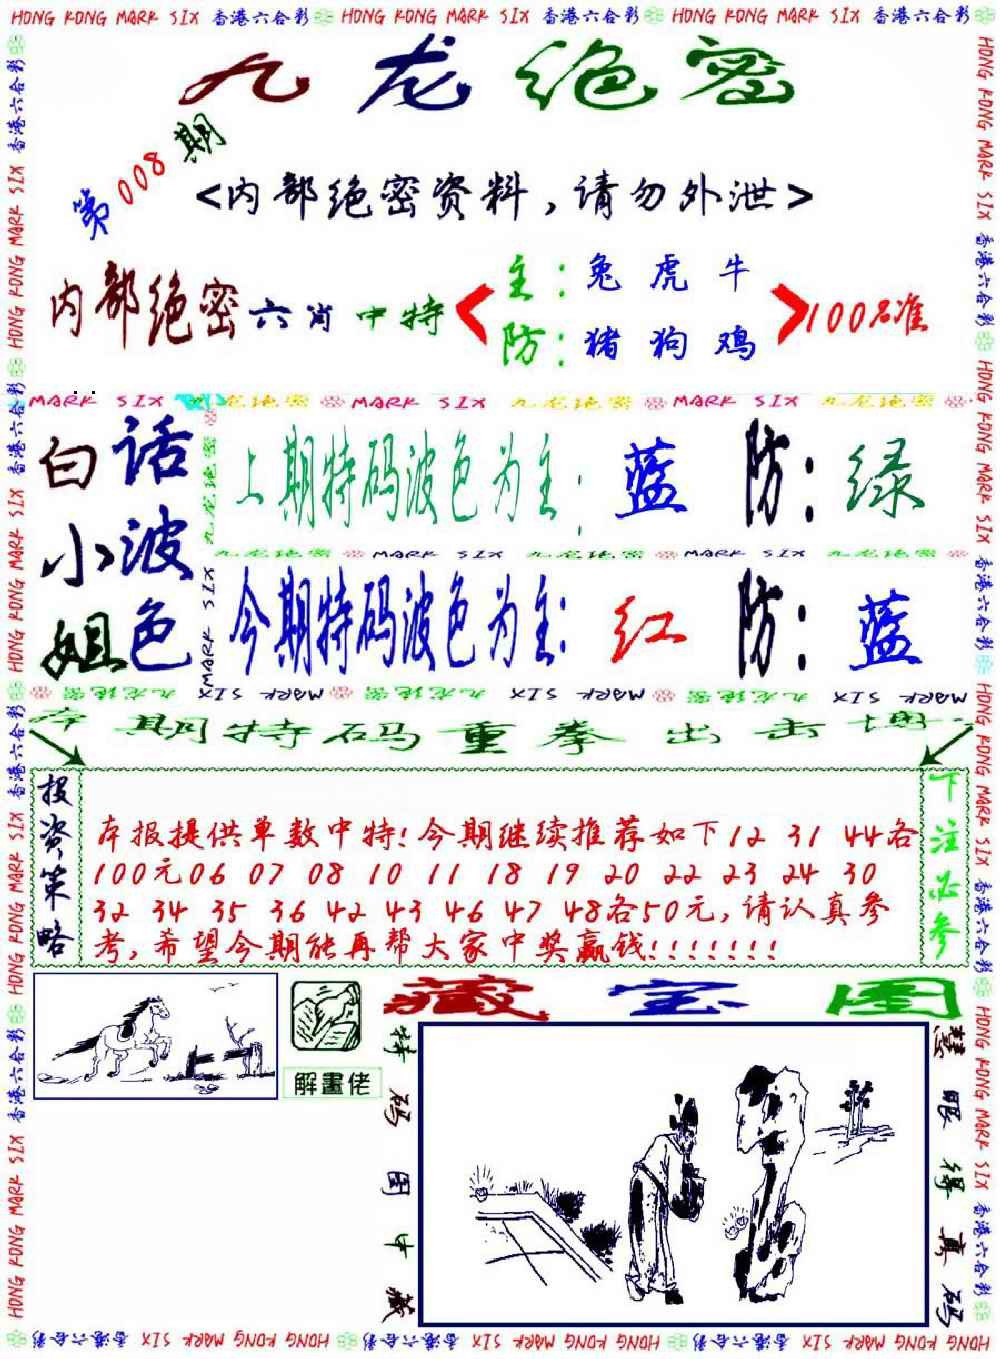 HONG KONG MARK SIX 香港六合彩 HONG KONG MARK SIX 香港六合彩 HONG KONG MARK SIX 香港六合彩
九龙绝密
第008期
<内部绝密资料,请勿外泄>
内部绝密六肖中特
主:兔 虎 牛
防:猪 狗 鸡
100%准
MARK SIX 九龙绝密 MARK SIX 九龙绝密 MARK SIX 九龙绝密
白小姐
话波色
上期特码波色为主: 蓝 防: 绿
九龙绝密 MARK SIX 九龙绝密 MARK SIX 九龙绝密
今期特码波色为主: 红 防: 蓝
MARK SIX 九龙绝密 MARK SIX 九龙绝密 MARK SIX 九龙绝密
本期特码重拳出击
投资策略
本报提供单数中特!今期继续推荐如下12 31 44各
100元06 07 08 10 11 18 19 20 22 23 24 30
32 34 35 36 42 43 46 47 48各50元,请认真参
考,希望今期能再帮大家中奖赢钱!!!!!!!
下注必参
藏宝图
解畫佬
特码图中藏
慧眼得真码
HONG KONG MARK SIX 香港六合彩 HONG KONG MARK SIX 香港六合彩 HONG KONG MARK SIX 香港六合彩